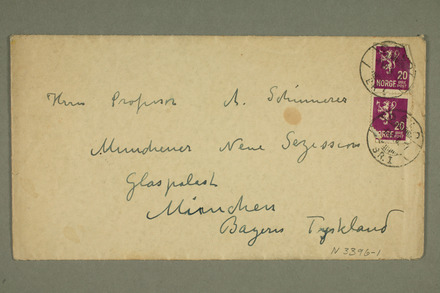 20
NORGE
20
Herrn Professor A. Schinnerer
Münchener Neue Sezession
Glaspalast
München
Bayern Tyskland
N 3396-1